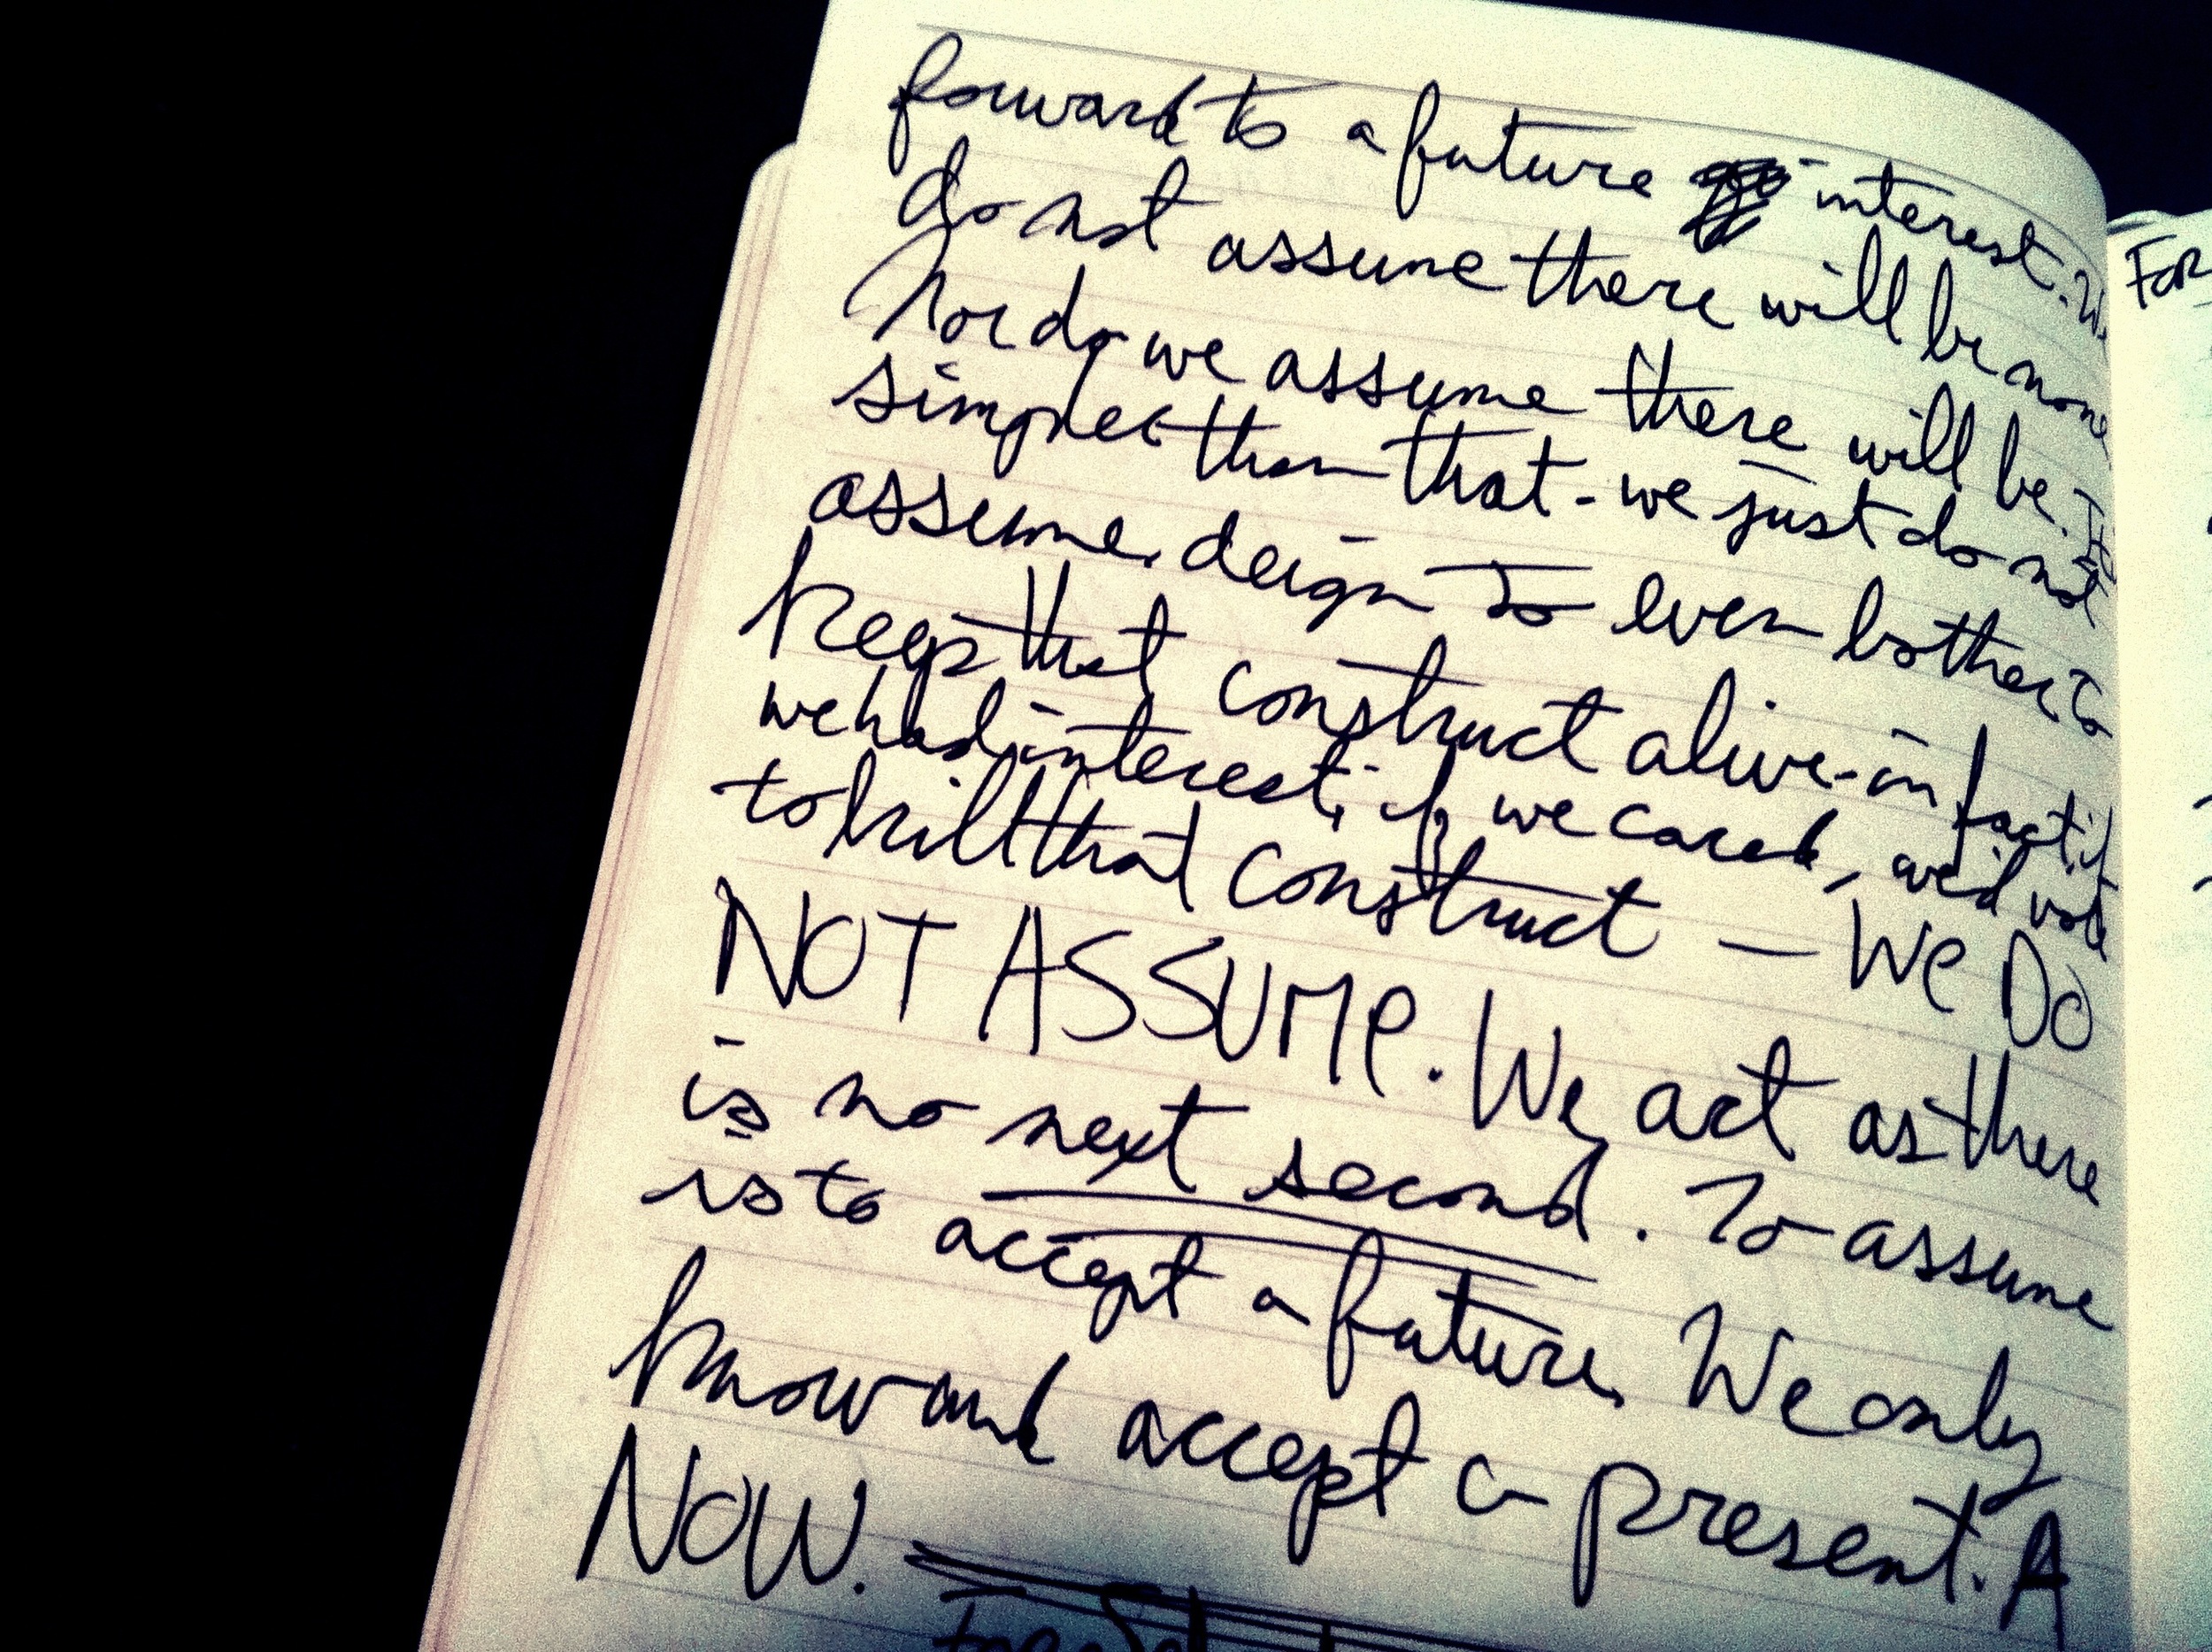 forward to a future interest. We
do not assume there will be none
Nor do we assume there will be. It's
simpler than that - we just do not
assume, deign to even bother to
keep that construct alive - in fact, if
we had interest, if we cared, we'd vote
to kill that construct — We DO
NOT ASSUMe. We act as there
is no next second. To assume
is to accept a future. We only
know and accept a present. A
NOW.
FOR